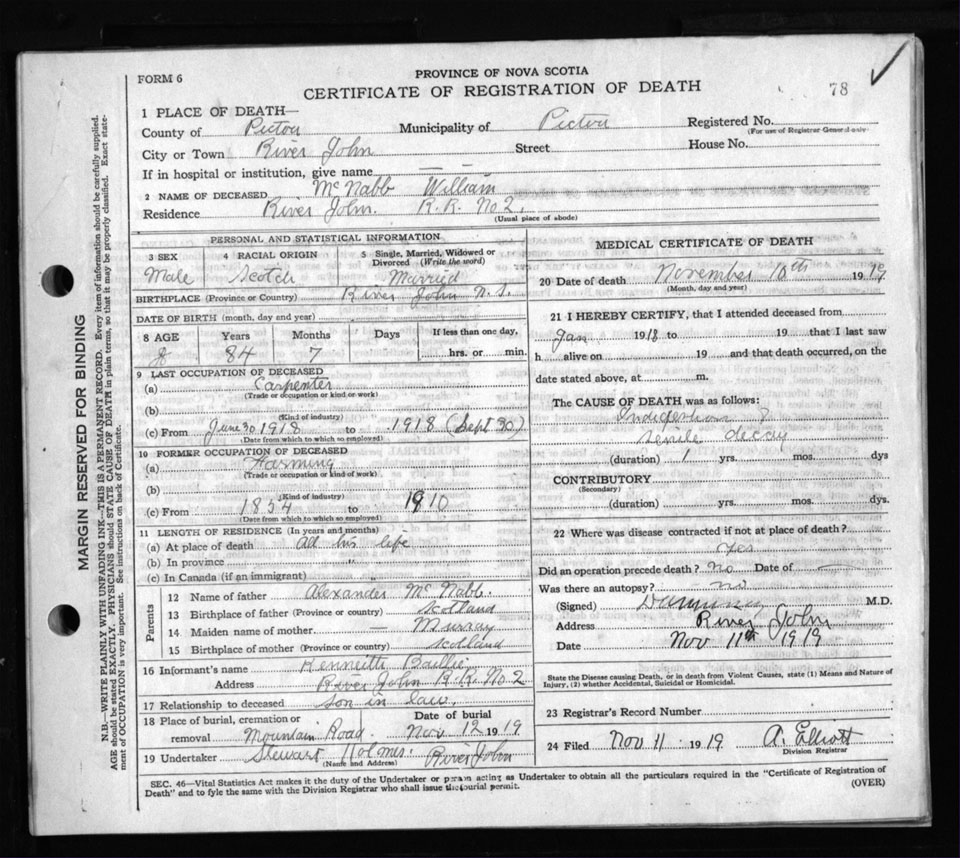 FORM 6
PROVINCE OF NOVA SCOTIA
CERTIFICATE OF REGISTRATION OF DEATH
78
1 PLACE OF DEATH—
County of Pictou Municipality of Pictou Registered No.
(For use of Registrar General only)
City or Town River John Street House No.
If in hospital or institution, give name — —
2 NAME OF DECEASED McNabb William
Residence River John. R.R. No 2.
(Usual place of abode)
PERSONAL AND STATISTICAL INFORMATION
3 SEX 4 RACIAL ORIGIN 5 Single, Married, Widowed or Divorced (Write the word)
Male Scotch Married
BIRTHPLACE (Province or Country) River John N.S.
DATE OF BIRTH (month, day and year)
8 AGE Years Months Days If less than one day,
84 7 hrs. or min.
9 LAST OCCUPATION OF DECEASED
(a) Carpenter
(Trade or occupation or kind of work)
(b)
(Kind of industry)
(c) From June 30 1918 to 1918 (Sept 30)
(Date from which to which so employed)
10 FORMER OCCUPATION OF DECEASED
(a) Farming
(Trade or occupation or kind of work)
(b)
(Kind of industry)
(c) From 1854 to 1910
(Date from which to which so employed)
11 LENGTH OF RESIDENCE (In years and months)
(a) At place of death All his life
(b) In province "
(c) In Canada (if an immigrant)
Parents
12 Name of father Alexander McNabb.
13 Birthplace of father (Province or country) Scotland
14 Maiden name of mother — Murray
15 Birthplace of mother (Province or country) Scotland
16 Informant's name Kenneith Baillie
Address River John R.R. No 2
17 Relationship to deceased son in law.
18 Place of burial, cremation or removal Mountain Road. Date of burial Nov 12 1919
19 Undertaker Stewart Holmes. River John
(Name and Address)
MEDICAL CERTIFICATE OF DEATH
20 Date of death November 10th 1919
(Month, day and year)
21 I HEREBY CERTIFY, that I attended deceased from
Jan 1918 to 19 that I last saw
h alive on 19 and that death occurred, on the
date stated above, at m.
The CAUSE OF DEATH was as follows:
Indigestion ?
senile decay
(duration) 1 yrs. mos. dys
CONTRIBUTORY
(Secondary)
(duration) yrs. mos. dys.
22 Where was disease contracted if not at place of death?
Did an operation precede death? No Date of —
Was there an autopsy? no
(Signed) M.D.
Address River John
Date Nov 11th 1919
State the Disease causing Death, or in death from Violent Causes, state (1) Means and Nature of
Injury, (2) whether Accidental, Suicidal or Homicidal.
23 Registrar's Record Number
24 Filed Nov 11 1919 A. Elliott
Division Registrar
SEC. 46—Vital Statistics Act makes it the duty of the Undertaker or person acting as Undertaker to obtain all the particulars required in the "Certificate of Registration of
Death" and to fyle the same with the Division Registrar who shall issue the burial permit.
(OVER)
MARGIN RESERVED FOR BINDING
N.B.—WRITE PLAINLY WITH UNFADING INK—THIS IS A PERMANENT RECORD. Every item of information should be carefully supplied.
AGE should be stated EXACTLY. PHYSICIANS should STATE CAUSE OF DEATH in plain terms, so that it may be properly classified. Exact state-
ment of OCCUPATION is very important. See instructions on back of Certificate.